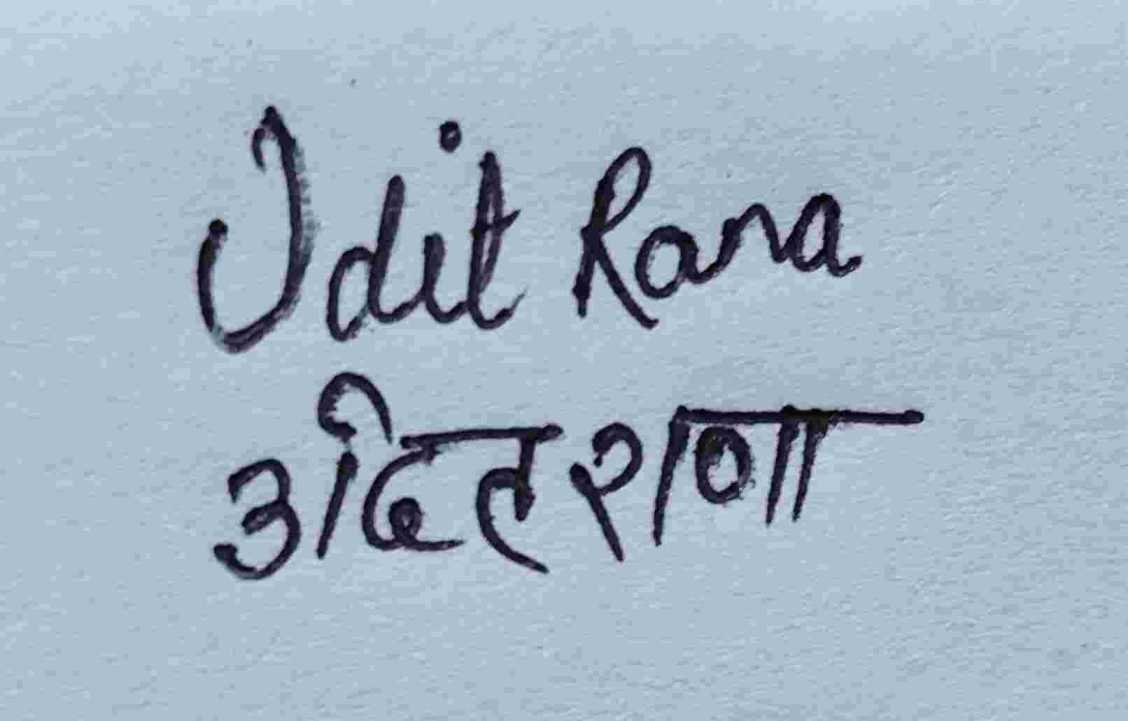 Udit Rana
उदित राणा